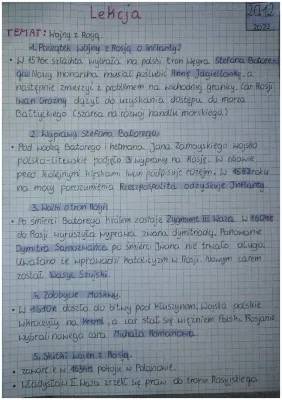 Lekcja
20.12
2022
TEMAT: Wojny z Rosją.
1. Początek wojny z Rosją o Inflanty.
• W 1576r szlachta wybrała na polski tron węgra Stefana Batorego
Nowy monarcha musiał poślubić Annę Jagiellonkę, a
następnie zmierzyć z problemem na wschodniej granicy. Car Rosji
Iwan Groźny dążył do uzyskania dostępu do morza
Bałtyckiego (szansa na rozwój handlu morskiego)
2. Wyprawy Stefana Batorego.
• Pod wodzą Batorego i hetmana Jana Zamoyskiego wojska
polsko-litewskie podjęło 3 wyprawy na Rosję. W obawie
przed kolejnymi klęskami Iwan podpisuje rozejm, W 1582 roku
na mocy porozumienia Rzeczpospolita odzyskuje Inflanty
3. Walki o tron Rosji
• Po śmierci Batorego królem zostaje Zygmunt III Waza. W
Rosji wyruszyła wyprawa zwana dymitriadą. Panowanie
Dymitra Samozwańca po śmierci Iwana nie trwało długo.
Uważano że wprowadzi katolicyzm w Rosji. Nowym carem
został Wasyl Szujski.
4. Zdobycie Moskwy.
• W 1610r doszło do bitwy pod Kłuszynem, Wojska polskie
wkroczyły na Kreml, a car stał się więźniem Polski. Rosjanie
wybrali nowego cara Michała Romanowa
5. Skutki wojen z Rosją.
• zawarcie w pokoju w Polanowie.
• Władysław IV Waza zrzekł się praw do tronu Rosyjskiego